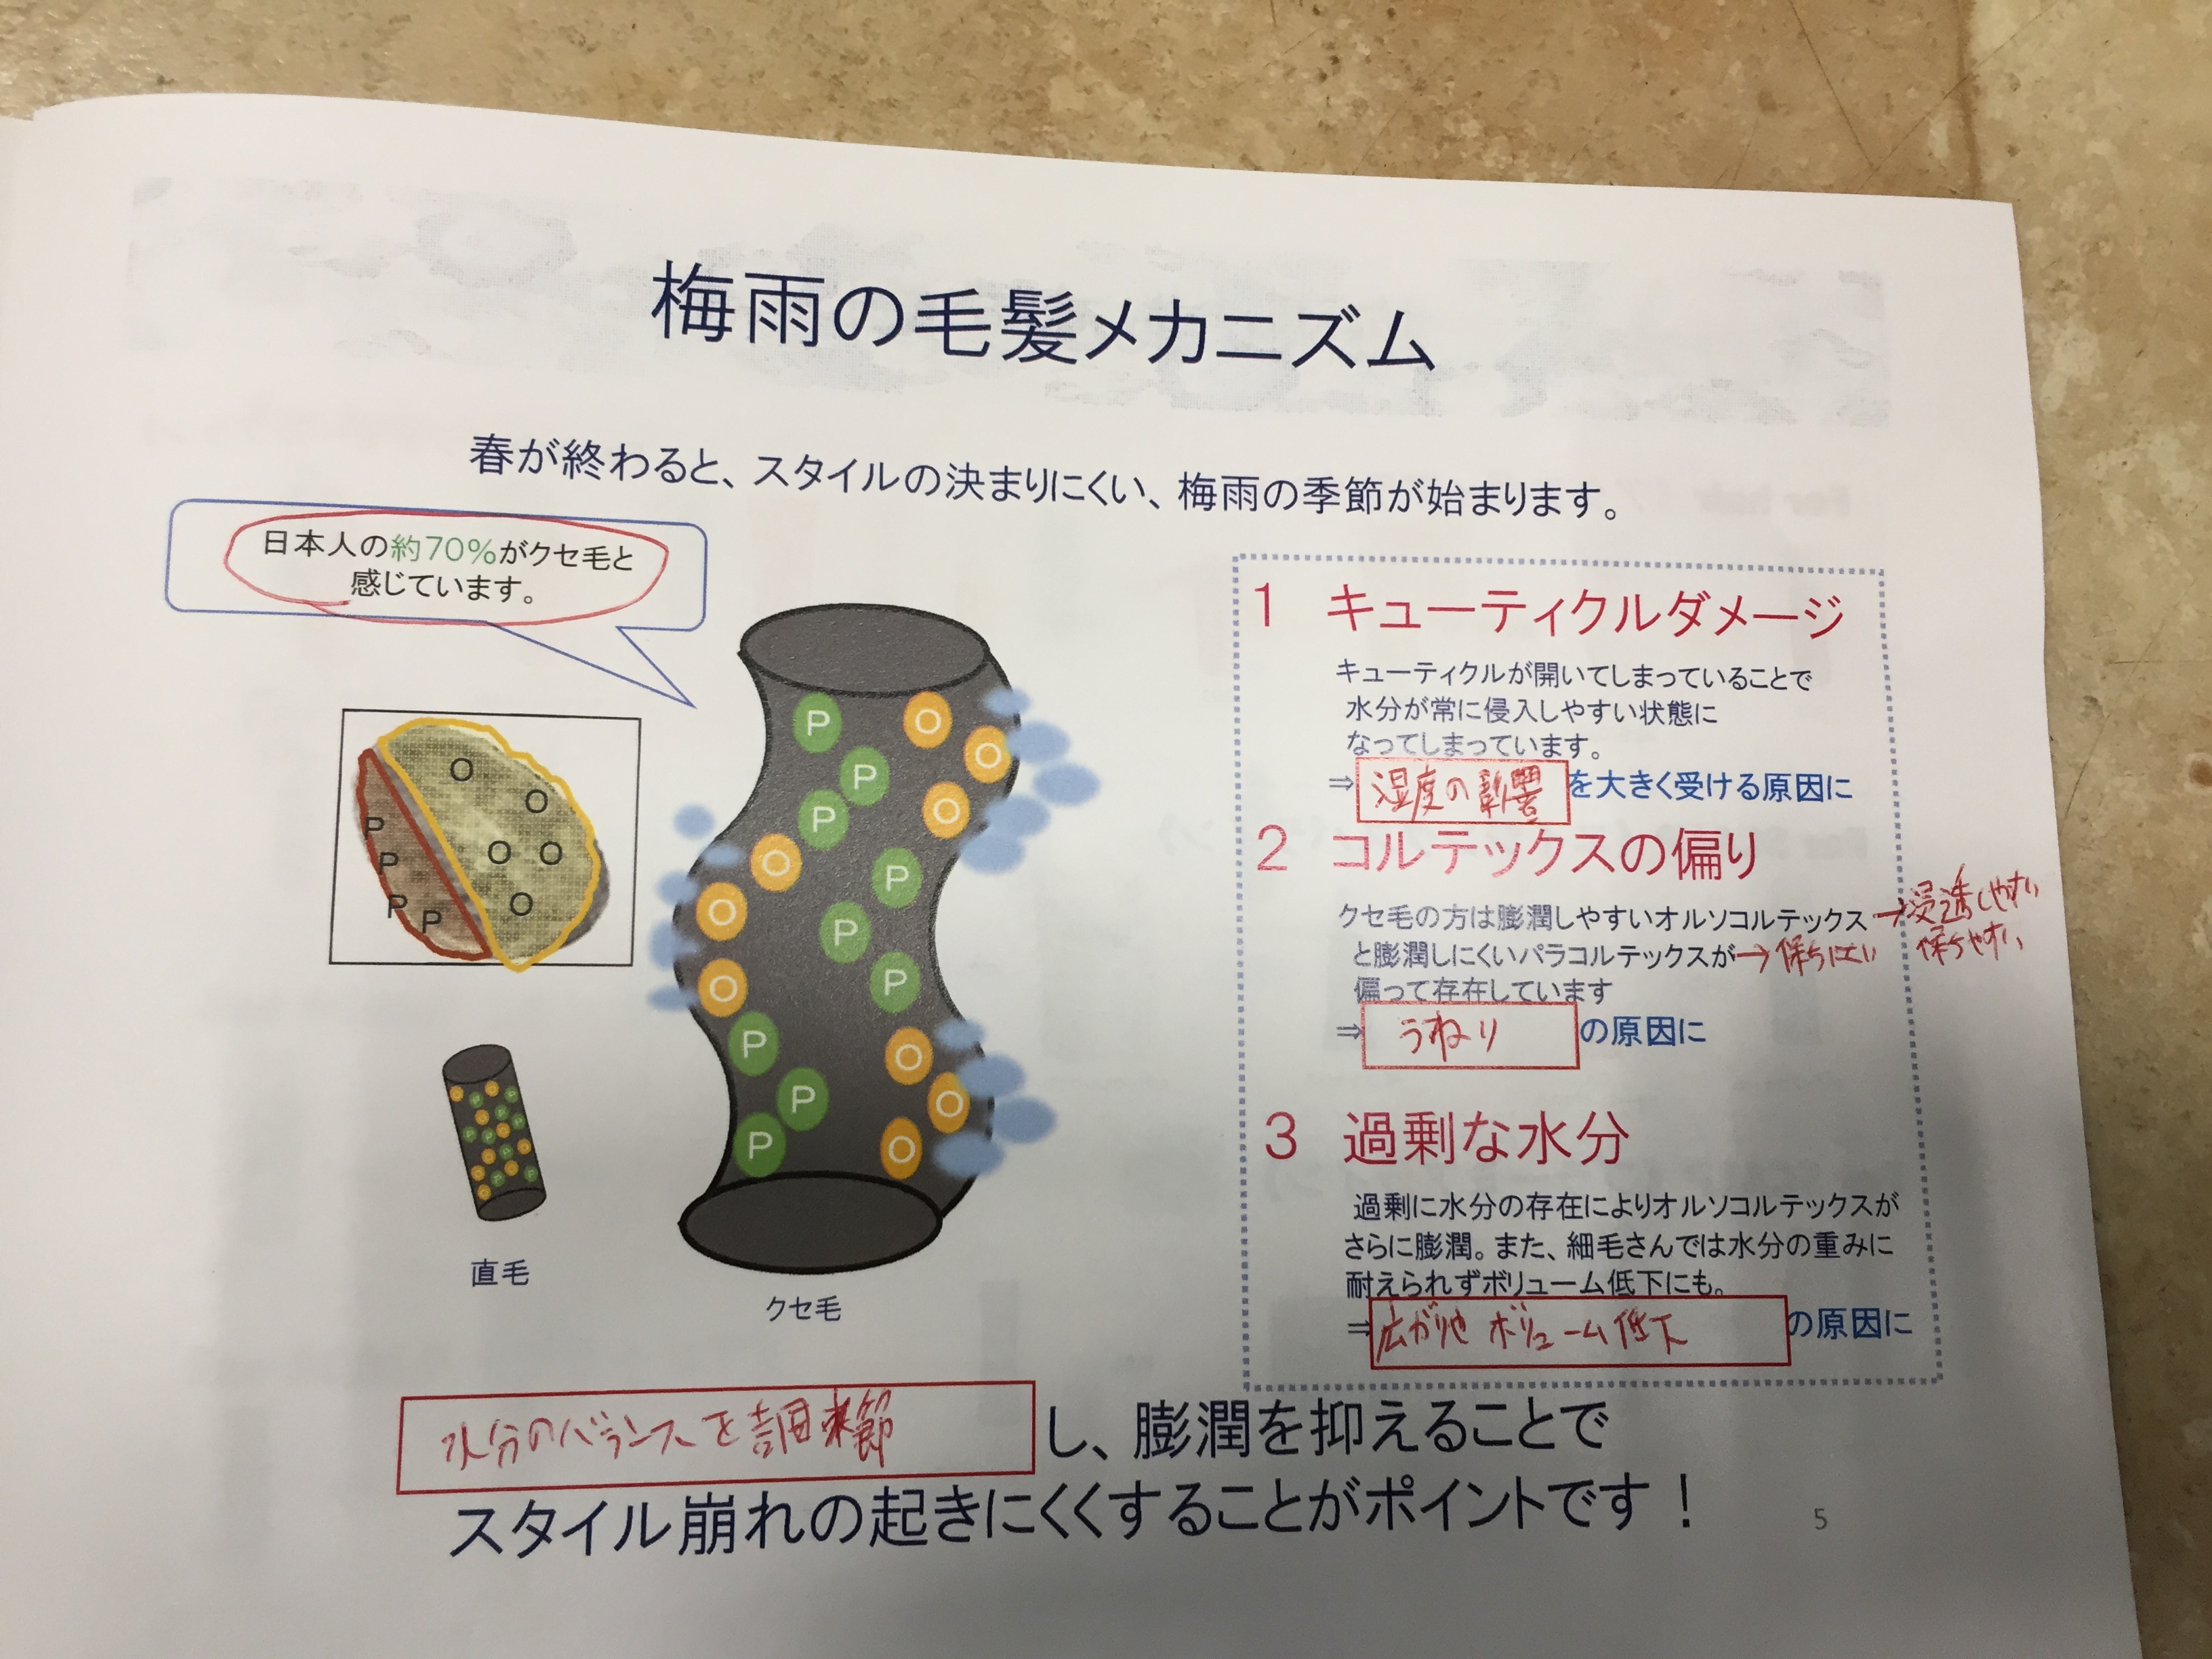 梅雨の毛髪メカニズム
春が終わると、スタイルの決まりにくい、梅雨の季節が始まります。
日本人の約70%がクセ毛と
感じています。
O
O
O O
O
P
P
P P
直毛
P O
O
P
P O
O
P
O
P
O P
P O
P O
P O
クセ毛
1 キューティクルダメージ
キューティクルが開いてしまっていることで
水分が常に侵入しやすい状態に
なってしまっています。
⇒ 湿度の影響 を大きく受ける原因に
2 コルテックスの偏り
クセ毛の方は膨潤しやすいオルソコルテックス →浸透しやすい
保ちやすい
と膨潤しにくいパラコルテックスが →保ちにくい
偏って存在しています
⇒ うねり の原因に
3 過剰な水分
過剰に水分の存在によりオルソコルテックスが
さらに膨潤。また、細毛さんでは水分の重みに
耐えられずボリューム低下にも。
⇒ 広がりや ボリューム低下 の原因に
水分のバランスを調節 し、膨潤を抑えることで
スタイル崩れの起きにくくすることがポイントです！
5